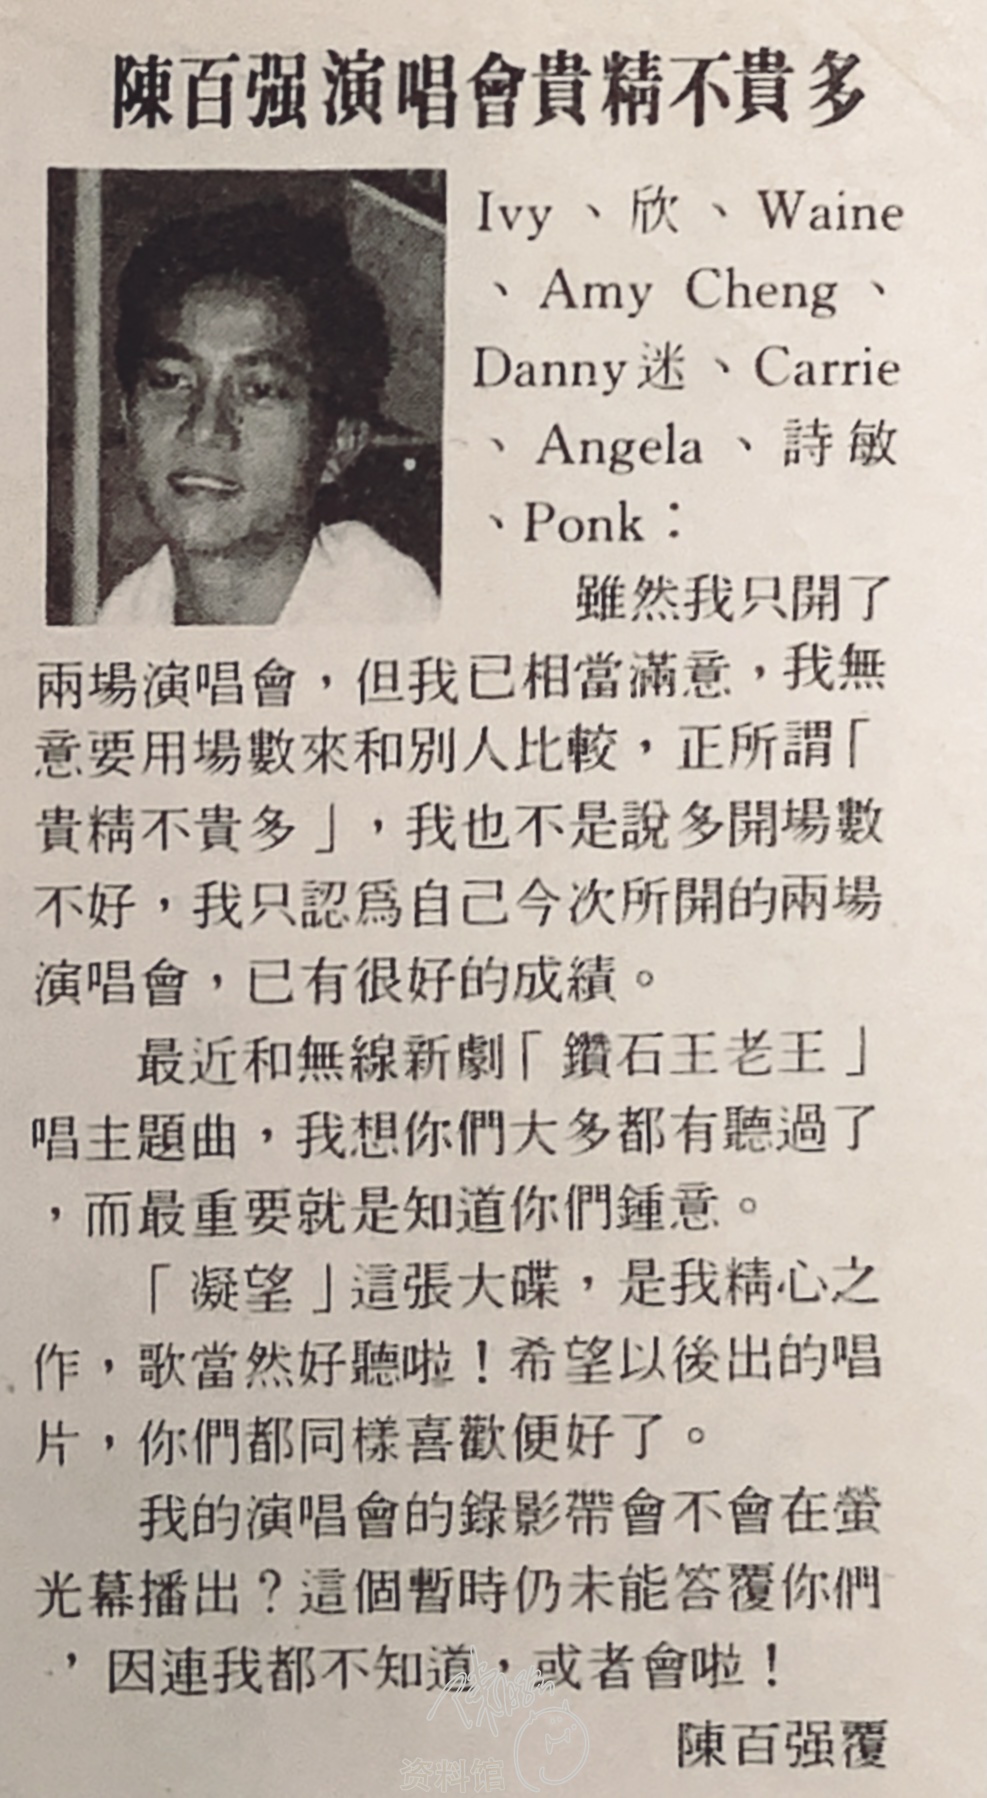 陳百强演唱會貴精不貴多
Ivy、欣、Waine
、Amy Cheng、
Danny迷、Carrie
、Angela、詩敏
、Ponk：
雖然我只開了
兩場演唱會，但我已相當滿意，我無
意要用場數來和別人比較，正所謂「
貴精不貴多」，我也不是說多開場數
不好，我只認爲自己今次所開的兩場
演唱會，已有很好的成績。
最近和無線新劇「鑽石王老王」
唱主題曲，我想你們大多都有聽過了
，而最重要就是知道你們鍾意。
「凝望」這張大碟，是我精心之
作，歌當然好聽啦！希望以後出的唱
片，你們都同樣喜歡便好了。
我的演唱會的錄影帶會不會在螢
光幕播出？這個暫時仍未能答覆你們
，因連我都不知道，或者會啦！
陳百强覆
资料馆